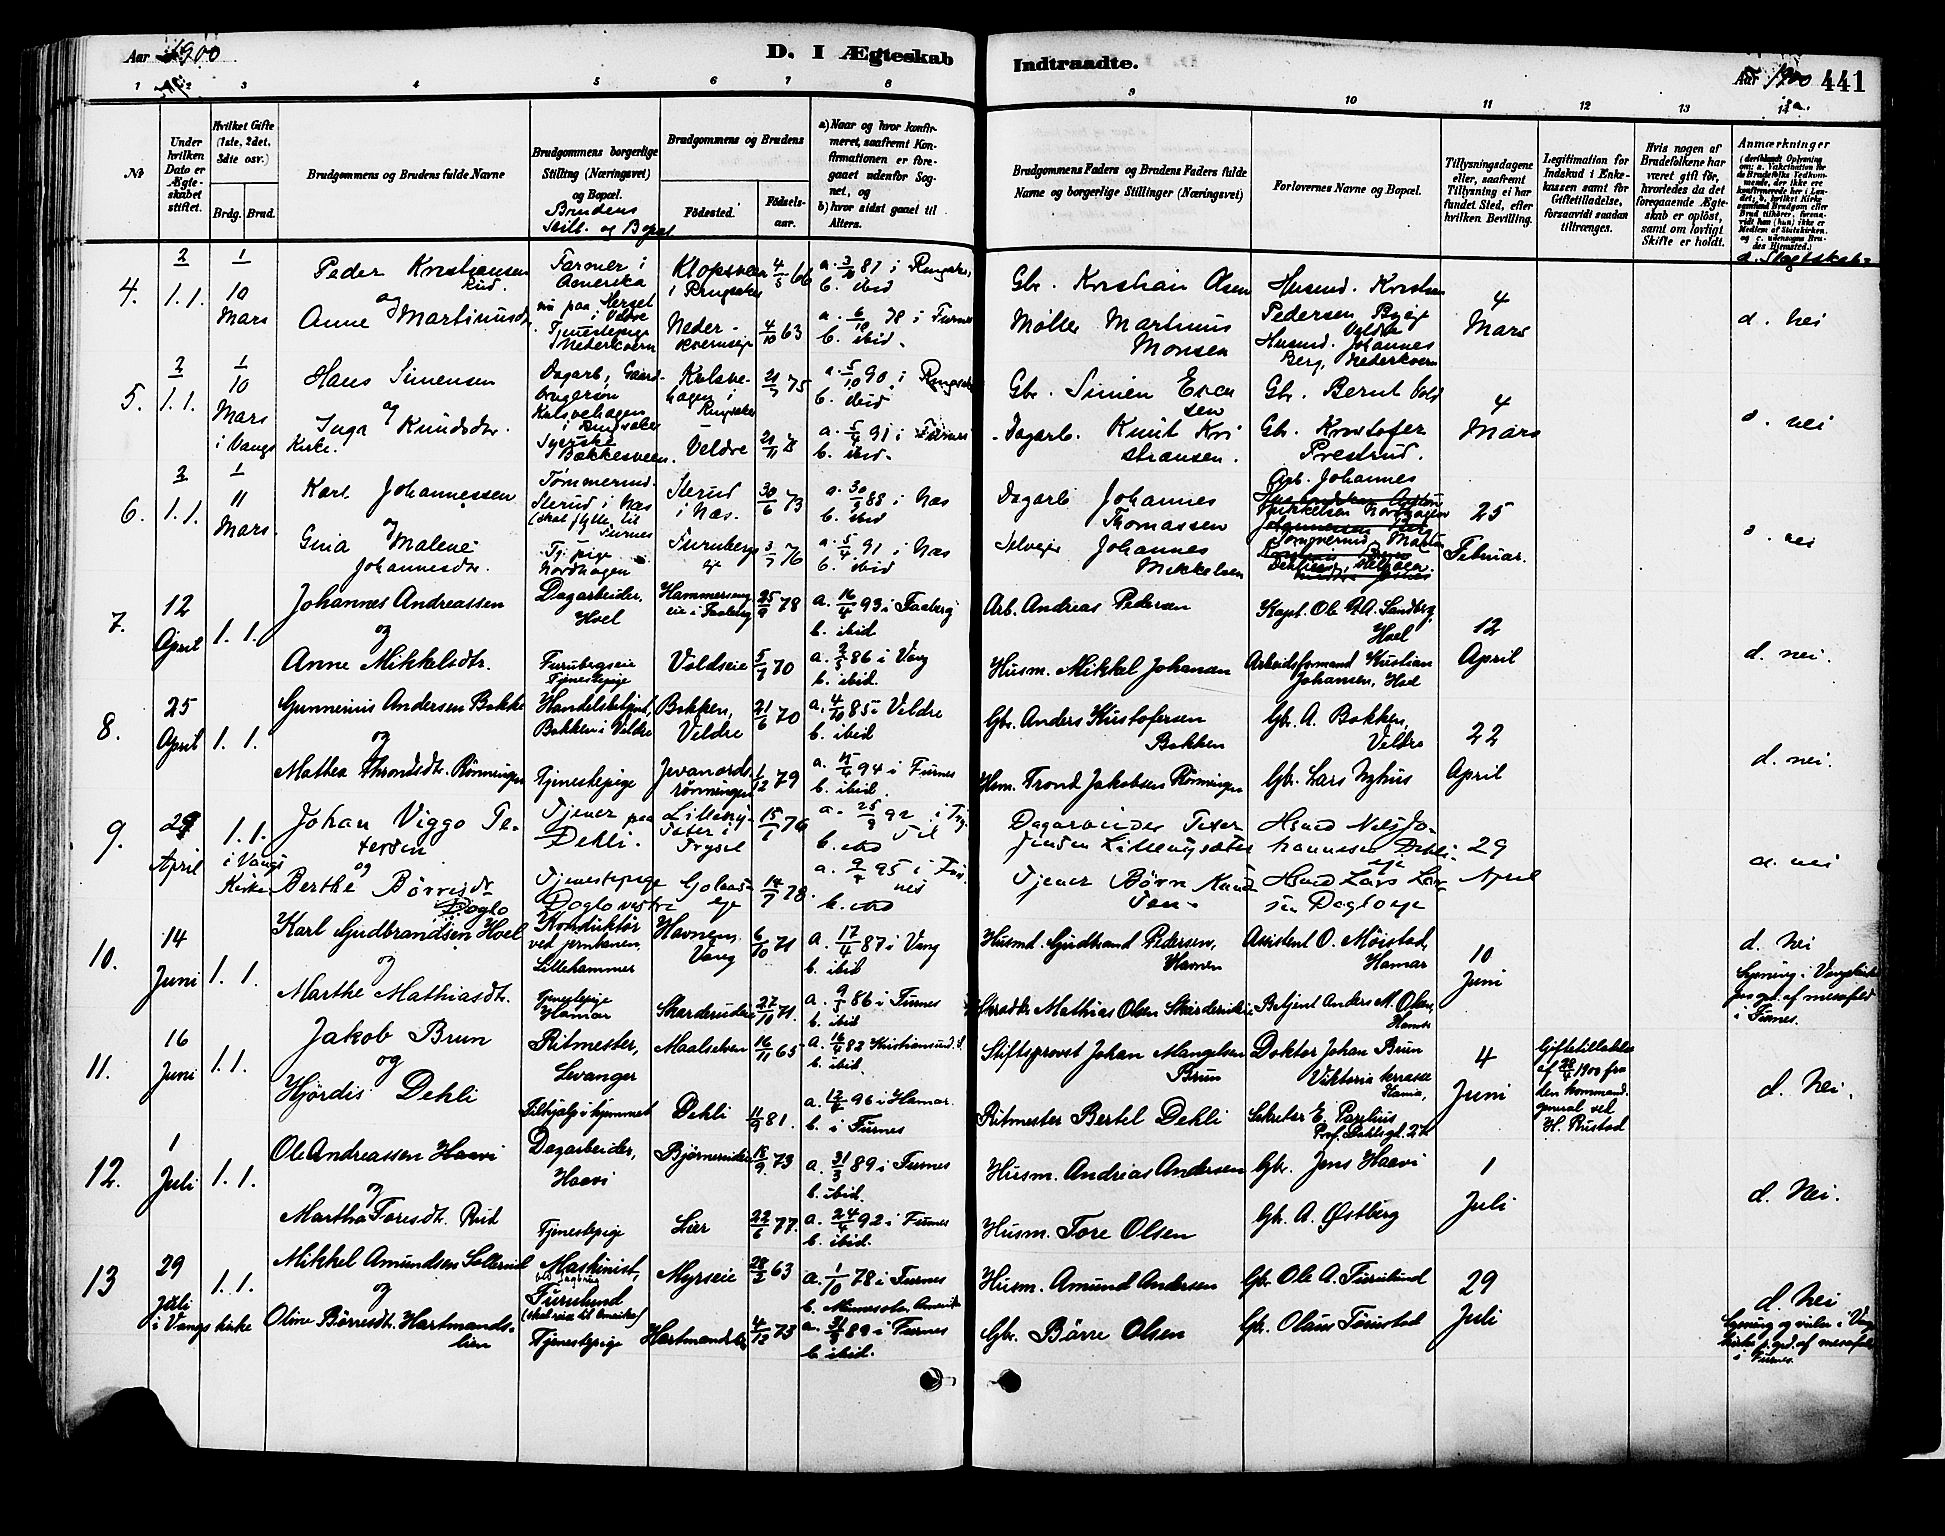 Aar 1900
D. I Ægteskab
Indtraadte.
Aar 1900 441
1 2 3 4 5 6 7 8
9 10 11 12 13 14
No
Under hvilken Dato er Ægteskabet stiftet.
Hvilket Gifte (1ste, 2det, 3die osv.)
Brdg. Brud.
Brudgommens og Brudens fulde Navne
Brudgommens borgerlige Stilling (Næringsvei) og Bopæl.
Brudens Still. og Bopæl
Brudgommens og Brudens
Födested.
Födselsaar.
a) Naar og hvor konfirmeret, saafremt Konfirmationen er foregaaet udenfor Sognet, og
b) hvor sidst gaaet til Alters.
Brudgommens Faders og Brudens Faders fulde Navne og borgerlige Stillinger (Næringsvei)
Forlovernes Navne og Bopæl.
Tillysningsdagene eller, saafremt Tillysning ei har fundet Sted, efter hvilken Bevilling.
Legitimation for Indskud i Enkekassen samt for Giftetilladelse, forsaavidt saadan tiltrænges.
Hvis nogen af Brudefolkene har været gift før, hvorledes da det foregaaende Ægteskab er oplöst, samt om lovligt Skifte er holdt.
Anmærkninger
d. Slægtskab
4. 1. 1. 10 Mars
Peder Kristiansen
og
Anne Martinusdr.
Farmer i Amerika
nu paa Herset i Veldre
Tjenestepige Nederkvern
i Ringsaker 4/5 66
4/10 63
a. 3/10 81 i Ringsaker
b. ibid
a. 6/10 78 i Furnes
b. ibid.
Gbr. Kristian Olsen
Møller Martinus Monsen
Husmd. Kristian Pedersen
Husmd. Johannes Berg, Nederkvern
4 Mars
d. nei
5. 1. 1. 10 Mars i Vangs Kirke.
Hans Simensen
og
Inga Knudsdr.
Dagarb., Gaardbrugersøn
Kulsvehagen i Ringsaker
Syerske Bakkesveen.
Kulsvehagen i Ringsaker
Veldre
a. 5/10 90 i Ringsaker
b. ibid
a. 5/4 91 i Furnes
b. ibid.
Gbr. Simen
Dagarb. Knut Kristiansen.
Gbr. Bernt
Gb. Kristofer Prestrud.
4 Mars
d. nei
6. 1. 1. 11 Mars.
Karl Johannessen
og
Gina Malene Johannesdr.
Tømmermd.
Sterud i Næs
(skal flytte til Furnes
Tj. pige Nordhagen
Sterud i Næs. 30/6 73
Furuberg eje 3/7 76
b. ibid
a. 5/4 91 i Næs
b. ibid
Dagarb Johannes Thomassen
Selvejer Johannes Mikkelsen
Arb. Johannes
25 Februar.
d. nei
7. 12 April 1. 1.
Johannes Andreassen
og
Anne Mikkelsdtr.
Dagarbeider. Hoel
Furubergseie Tjenestepige
Hammerseng eie i Faaberg 25/9 78
Voldseie 5/7 70
a. 16/4 93 i Faaberg
b. ibid
a. 2/5 86 i Vang
b. ibid.
Arb. Andreas Pedersen
Husm. Mikkel Johansen
Kapt. Ole A. Sandberg, Hoel
Arbeidsformand Kristian Johansen, Hoel
12 April
d. nei.
8. 25 April 1. 1.
Gunnerius Andersen Bakke
og
Mathea Throndsdtr. Rønningen
Handelsbetjent, Bakken i Veldre
Tjenestepige
Bakken, Veldre 21/6 70
rønningen 1/12 79
a. 4/10 85 i Veldre
b. ibid
a. 15/4 94 i Furnes
b. ibid.
Gbr. Anders Kristofersen Bakken
Hsm. Trond Jakobsen Rønningen
Gbr. A. Bakken, Veldre
Gbr. Lars Nyhus
22 April
d. nei.
9. 29 April 1. 1. i Vangs Kirke
Johan Viggo Petersen
og
Berthe Børresdr Doglo
Tjener paa Dehli.
Tjenestepige Doglo vestre
Trysil 15/1 76
14/7 78.
a. 25/9 92 i Trysil
a. 9/4 95 i Furnes
Dagarbeider Peter Jensen
Tjener Børre Knudsen.
Hsmd Nils Johannesen Dehli eje
Hsmd Lars Larsen Dogloeje
29 April
d. nei
10. 14 Juni 1. 1.
Karl Gudbrandsen Hoel
og
Marthe Mathiasdtr.
Konduktør ved jernbanen, Lillehammer
Tjenestepige Hamar
Havnen, Vang 6/10 71
Skarderudeie 27/10 71.
a. 17/4 87 i Vang
b. ibid
a. 9/5 86 i Furnes
b. ibid
Husmd. Gudbrand Pedersen, Havnen
Skrædder Mathias Olsen Skarderudeie
Assistent O. Møistad, Hamar
Betjent Anders M. Olsen, Hamar
10 Juni
d. Nei
Lysning i Vangskirke paa grd. af messefald i Furnes.
11. 16 Juni 1. 1.
Jakob Brun
og
Hjørdis Dehli
Ritmester, Levanger
Tilhjælp i hjemmet
Maalselven 16/11 65
Dehli 11/9 81.
a. 16/4 82 Kristiansund. S.
b. ibid.
a. 12/4 96 i Hamar.
b. i Furnes
Stiftsprovst Johan Mangelsen Brun
Ritmester Bertel Dehli
Doktor Johan Brun Viktoria terrasse Kania,
Sekretær E. Parelius Prof. Dahlsgd. 27
4 Juni
Giftetilladelse af 28/5 1900 fra den kommand. general ved H. Rustad
d. Nei.
12. 1 Juli 1. 1.
Ole Andreassen Haavi
og
Martha Toresdt. Rud
Dagarbeider, Haavi
Tjenestepige
Bjørnerudeie 18/9 73
Lier 22/6 77.
a. 31/3 89 i Furnes
b. ibid.
a. 24/4 92 i Furnes
b. ibid.
Husm. Andreas Andersen
Husm. Tore Olsen
Gbr. Jens Haavi
Gbr. A. Østberg
1 Juli
d. Nei.
13 29 Juli i Vangs kirke 1. 1.
Mikkel Amundsen Sollerud
og
Oline Børresdt. Hartmandslien
Maskinist, Furulund
(skal reise til Amerika)
Tjenestepige
Myrseie 28/2 63
Hartmandslien 4/12 73
a. 1/10 78 i Furnes
b. Minnesota, Amerika
a. 31/3 89 i Furnes
b. ibid.
Husm. Amund Andersen
Gbr. Börre Olsen
Gbr. Ole A. Furulund
Gbr. Olaus
29 Juli
d. Nei
Lysning og vielse i Vangs kirke p. grd. af messefald i Furnes.